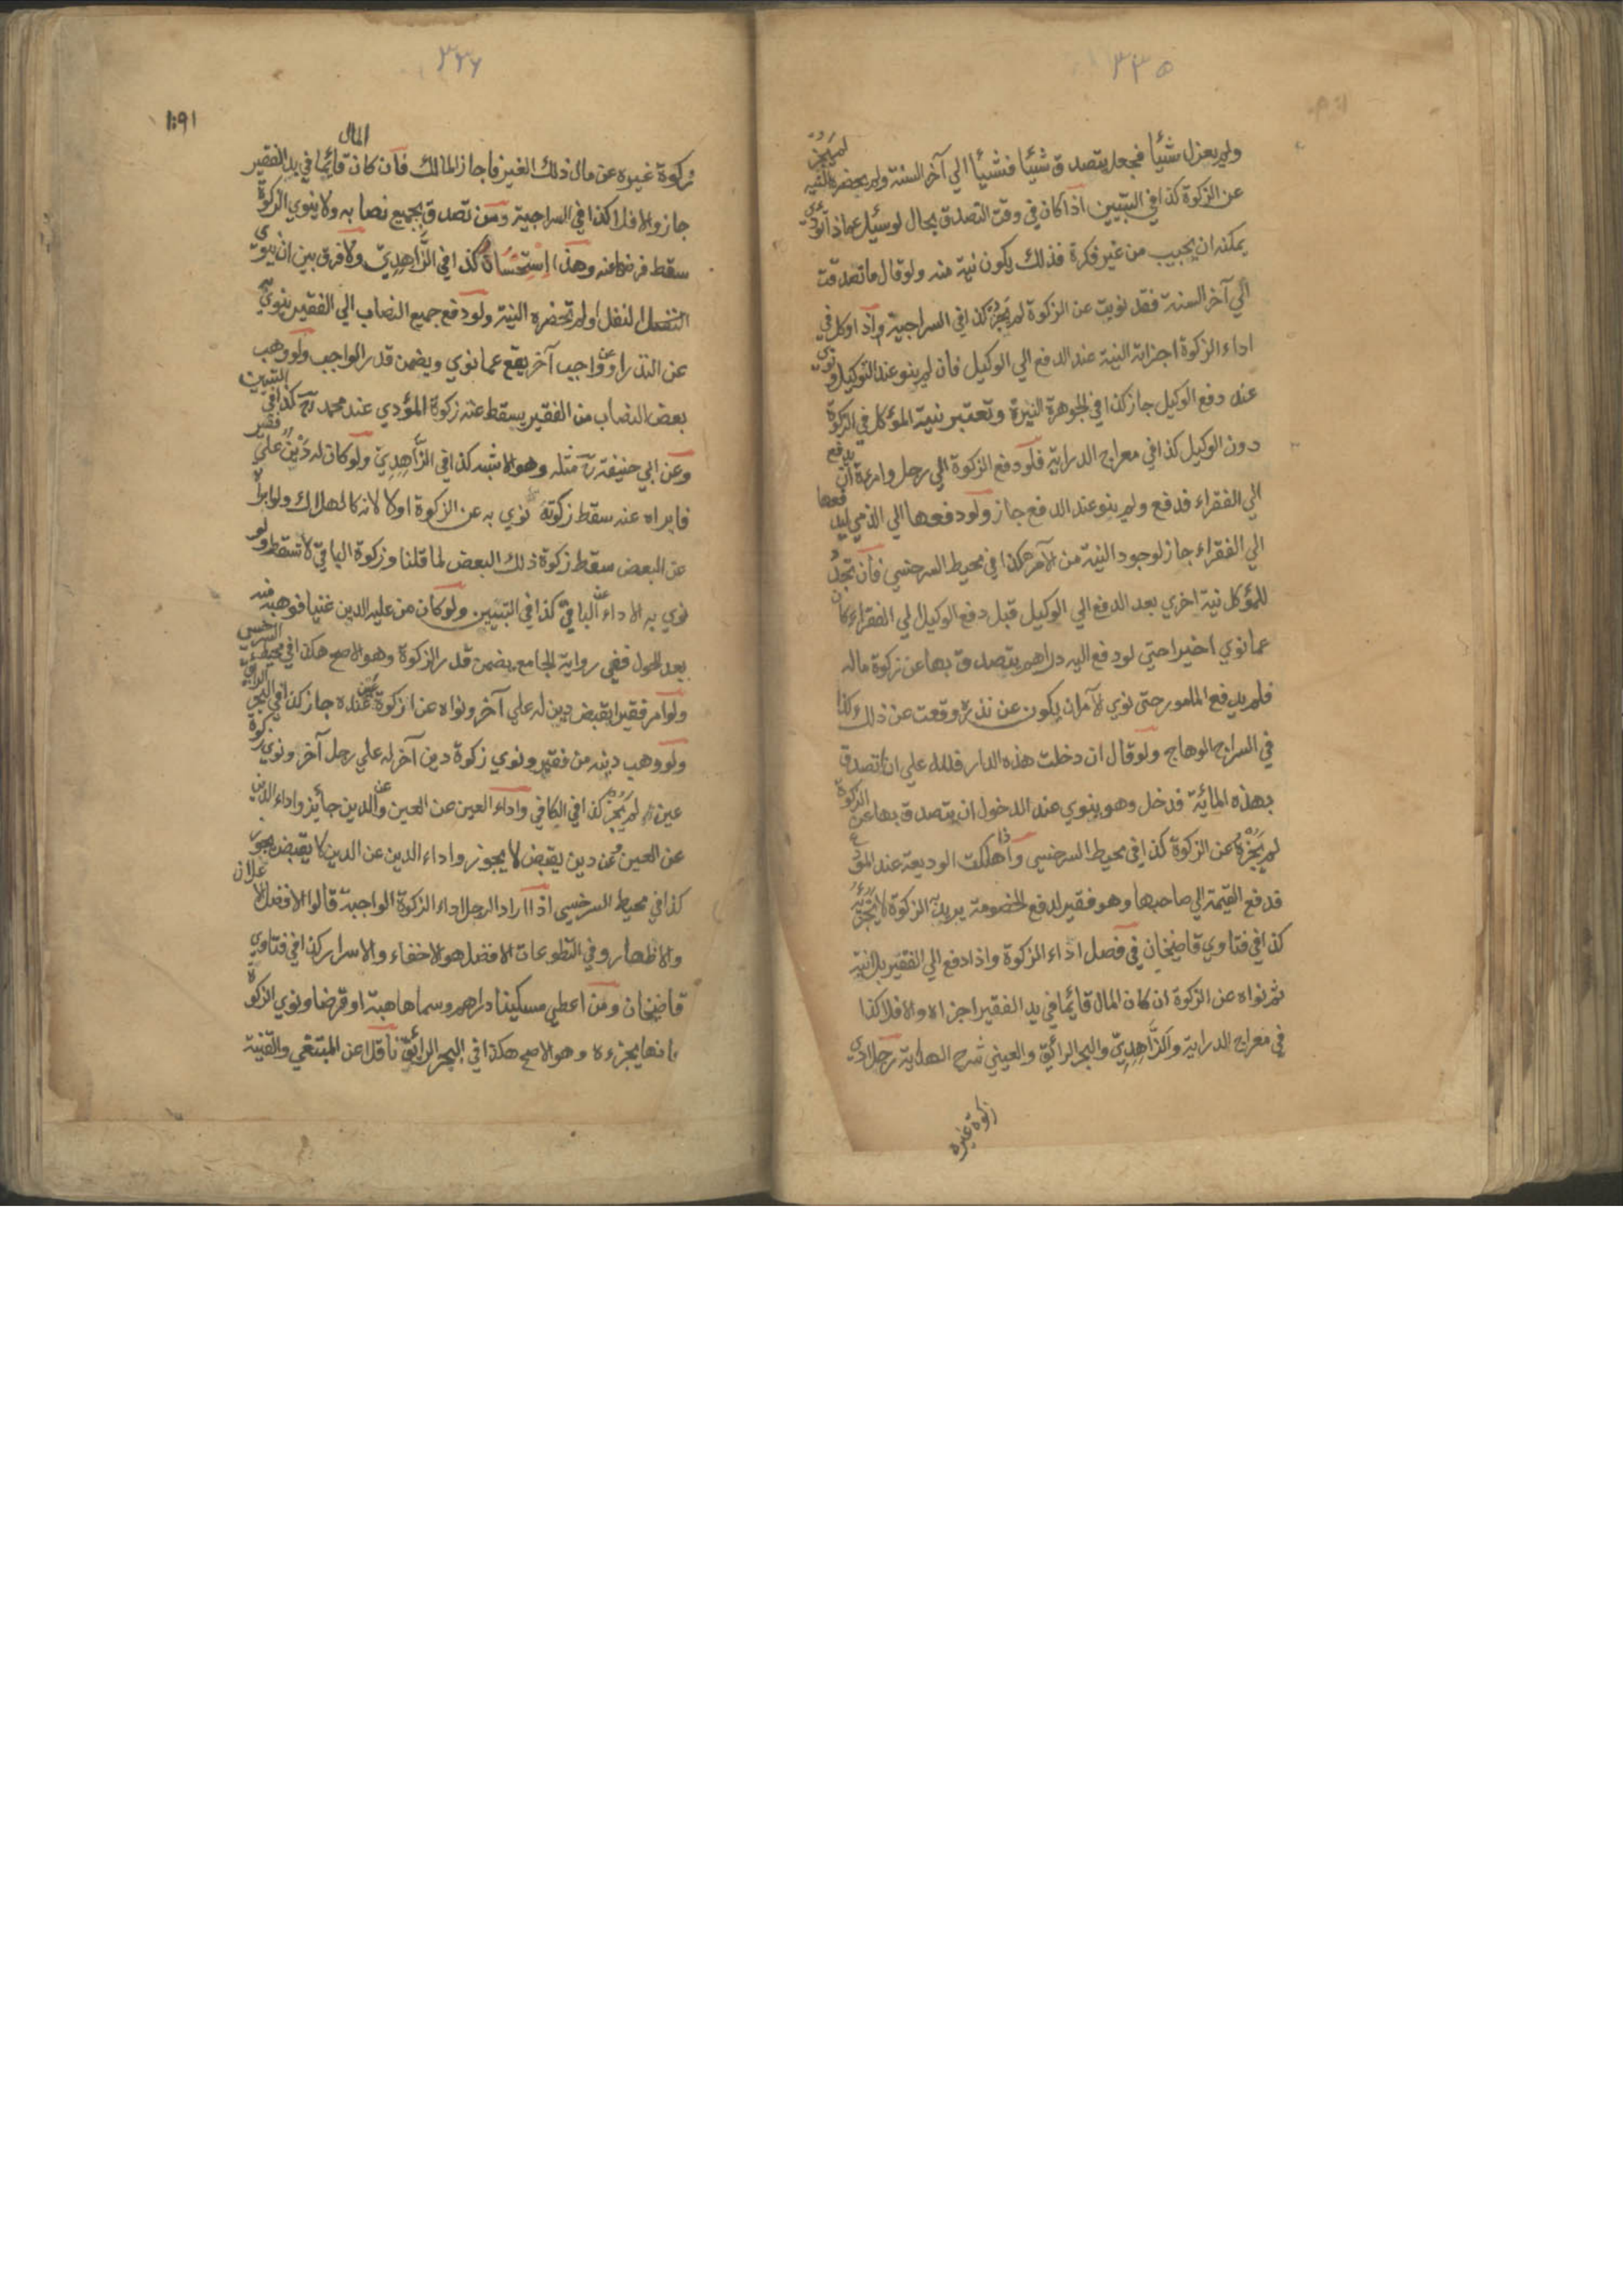 ٣٣٥
ولم يعزل شيئا فجعل يتصدق شيئا فشيئا الي آخر السنة ولم يحضره النية لم يجز
عن الزكوة كذا في التبيين اذا كان في وقت التصدق بحال لو سئل عماذا تؤدي
يمكنه ان يجيب من غير فكرة فذلك يكون نية منه ولو قال ما تصدقت
الي آخر السنة فقد نويت عن الزكوة لم يجز كذا في السراجية واذا وكل في
اداء الزكوة اجزاته النية عند الدفع الي الوكيل فان لم ينو عند التوكيل ونوي
عند دفع الوكيل جاز كذا في الجوهرة النيرة وتعتبر نية المؤكل في الزكوة
دون الوكيل كذا في معراج الدراية فلو دفع الزكوة الي رجل وامره ان يدفع
الي الفقراء فدفع ولم ينو عند الدفع جاز ولو دفعها الي الذمي ليدفعها
الي الفقراء جاز لوجود النية من الآمر هكذا في محيط السرخسي فان تجدد
للمؤكل نية اخري بعد الدفع الي الوكيل قبل دفع الوكيل الي الفقراء كان
عما نوي اخيرا حتي لو دفع اليه دراهم يتصدق بها عن زكوة ماله
فلم يدفع المامور حتى نوي الآمر ان يكون عن نذره وقعت عن ذلك كذا
في السراج الوهاج ولو قال ان دخلت هذه الدار فلله علي ان اتصدق
بهذه المائة فدخل وهو ينوي عند الدخول ان يتصدق بها عن الزكوة
لم يجزه عن الزكوة كذا في محيط السرخسي واذا هلكت الوديعة عند المودع
فدفع القيمة الي صاحبها وهو فقير لدفع الخصومة يريد به الزكوة لا يجزئه
كذا في فتاوي قاضيخان في فصل اداء الزكوة واذا دفع الي الفقير بلا نية
ثم نواه عن الزكوة ان كان المال قائما في يد الفقير اجزاه والا فلا كذا
في معراج الدراية والزاهدي والبحر الرائق والعيني شرح الهداية رجل ادي
زكوة غيره
٣٣٦
زكوة غيره عن مال ذلك الغير فاجاز المالك فان كان المال قائما في يد الفقير
جاز والا فلا كذا في السراجية ومن تصدق بجميع نصابه ولا ينوي الزكوة
سقط فرضها عنه وهذا استحسان كذا في الزاهدي ولا فرق بين ان ينوي
النفل او لم تحضره النية ولو دفع جميع النصاب الي الفقير ينوي به
عن النذر او عن واجب آخر يقع عما نوي ويضمن قدر الواجب ولو وهب
بعض النصاب من الفقير يسقط عنه زكوة المؤدي عند محمد رح كذا في التبيين
وعن ابي حنيفة رح مثله وهو الاشبه كذا في الزاهدي ولو كان له دين علي فقير
فابراه عنه سقط زكوته نوي به عن الزكوة او لا لانه كالهلاك ولو ابراه
عن البعض سقط زكوة ذلك البعض لما قلنا وزكوة الباقي لا تسقط ولو
نوي به الاداء عن الباقي كذا في التبيين ولو كان من عليه الدين غنيا فوهبه منه
بعد الحول ففي رواية الجامع يضمن قدر الزكوة وهو الاصح هكذا في محيط السرخسي
ولو امر فقيرا بقبض دين له علي آخر ونواه عن زكوة عين عنده جاز كذا في البحر الرائق
ولو وهب دينه من فقير ونوي زكوة دين آخر له علي رجل آخر ونوي زكوة
عين له لم يجز كذا في الكافي واداء العين عن العين وعن الدين جائز واداء الدين
عن العين وعن دين يقبض لا يجوز واداء الدين عن الدين لا يقبض يجوز
كذا في محيط السرخسي اذا اراد الرجل اداء الزكوة الواجبة قالوا الافضل الاعلان
والاظهار وفي التطوعات الافضل هو الاخفاء والاسرار كذا في فتاوي
قاضيخان ومن اعطي مسكينا دراهم وسماها هبة او قرضا ونوي الزكوة
فانها يجزءه وهو الاصح هكذا في البحر الرائق ناقلا عن المبتغي والقنية